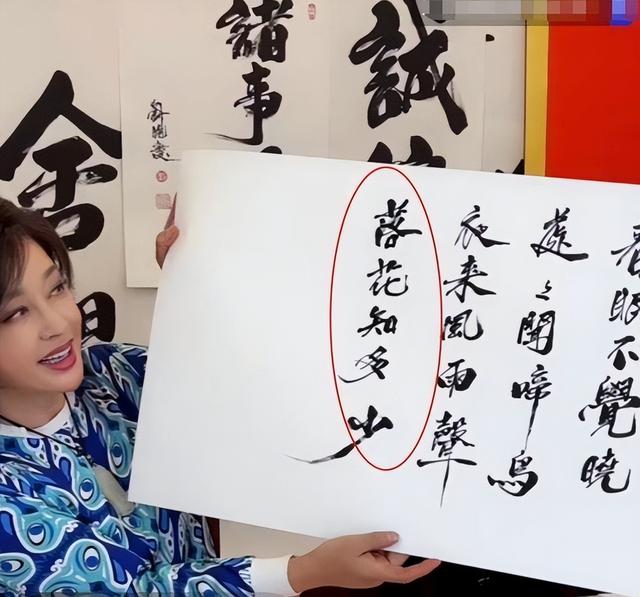 春眠不覺曉
處々聞啼鳥
夜来風雨聲
落花知多少
誠
諸事
劉曉慶
舍